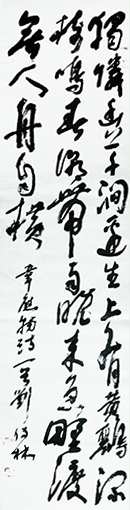 獨憐幽草澗邊生上有黃鸝深
樹鳴春潮帶雨晚來急野渡
無人舟自橫
韋應物詩一首劉林